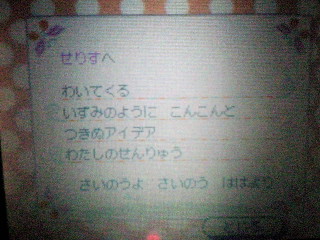 せりすへ
わいてくる
いずみのように こんこんと
つきぬアイデア
わたしのせんりゅう
さいのうよ さいのう ははより
とじる